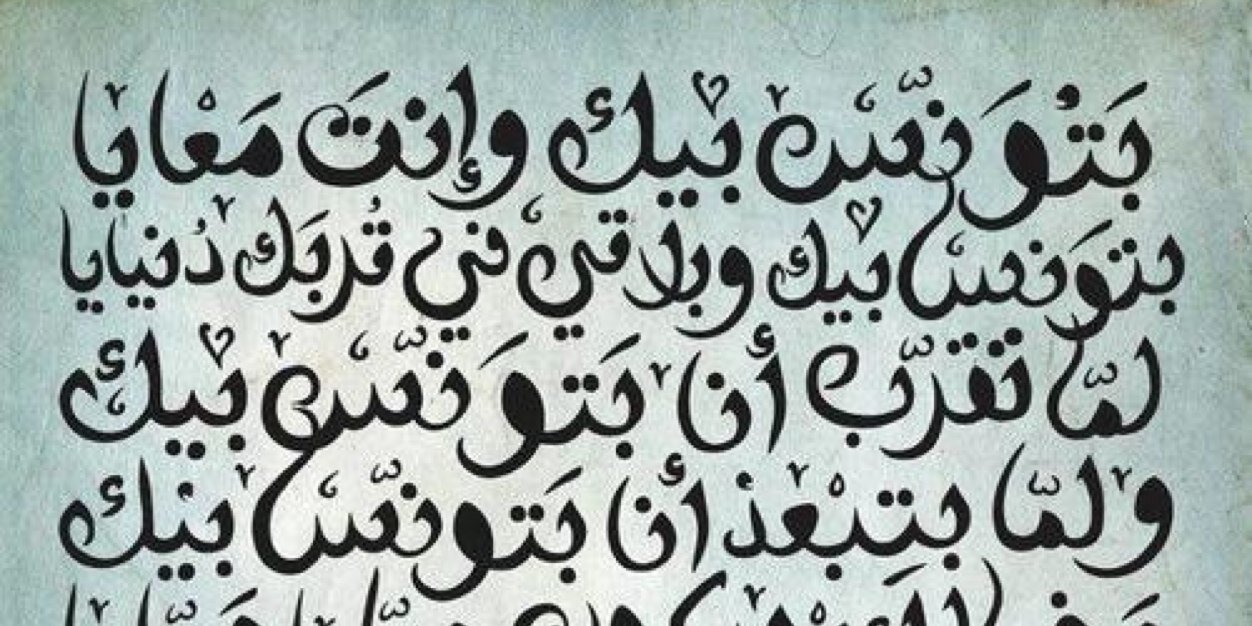 بَتْوَنّس بيك وإنتَ مَعْايا
بتوَنس بيك وبلاقي في قُربَك دُنيايا
لمّا تقرّب أنا بَتوَنّس بيك
ولمّا بتِبْعد أنا بَتونّس بيك